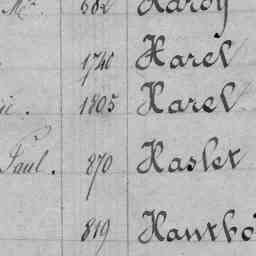 Mr. 682 Hardy
1740 Harel
ic. 1805 Harel
Paul. 270 Haslet
819 Hautbo